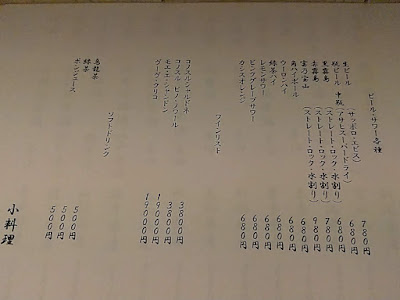 ビール・サワー各種
生ビール (サッポロ・エビス) 780円
瓶ビール 中瓶 (アサヒスーパードライ) 680円
黒霧島 (ストレート・ロック・水割り) 680円
赤霧島 (ストレート・ロック・水割り) 780円
富乃宝山 (ストレート・ロック・水割り) 980円
角ハイボール 680円
ウーロンハイ 680円
緑茶ハイ 680円
レモンサワー 680円
ピンクグレープサワー 680円
カシスオレンジ 680円
ワインリスト
コノスル・シャルドネ 3800円
コノスル・ピノ・ノワール 3800円
モエ・エ・シャンドン 19000円
ヴーヴ・クリコ 19000円
ソフトドリンク
烏龍茶 500円
緑茶 500円
ポンジュース 500円
小料理